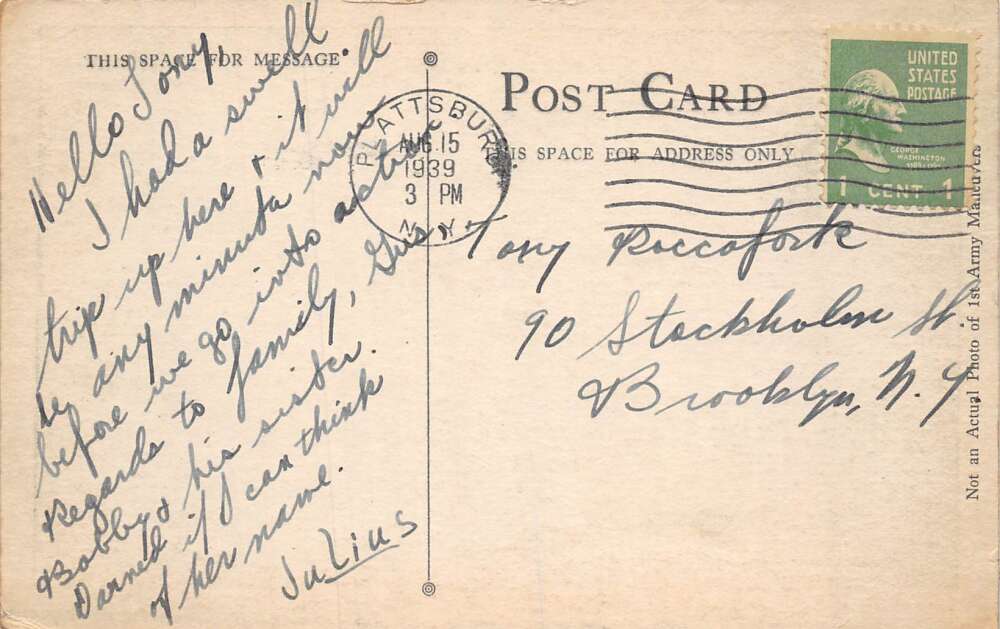 THIS SPACE FOR MESSAGE
Hello Tony,
I had a swell
trip up here & it will
be any minute now
before we go into action
Regards to family, Gus,
Bobby & his sister.
Darned if I can think
of her name.
Julius
POST CARD
THIS SPACE FOR ADDRESS ONLY
PLATTSBURG
AUG. 15
1939
3 PM
N. Y.
UNITED
STATES
POSTAGE
GEORGE
WASHINGTON
1 CENT 1
Tony Roccoforte
90 Stockholm St.
Brooklyn, N. Y.
Not an Actual Photo of 1st Army Maneuvers